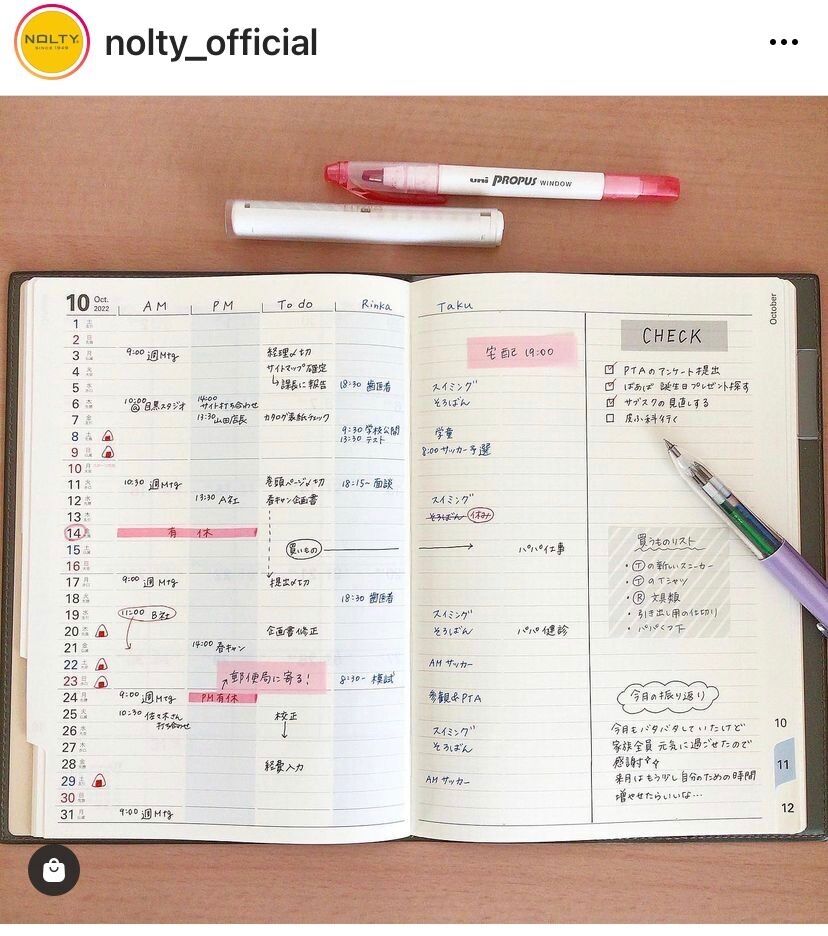 NOLTY
SINCE 1949
nolty_official
uni PROPUS WINDOW
10 Oct. 2022
AM PM To do Rinka
1 土
2 日
3 月 9:00 週Mtg 経理〆切
4 火 サイトマップ確定
5 水 ↳課長に報告 18:30 歯医者
6 木 10:00 @目黒スタジオ 14:00 サイト打ち合わせ
7 金 13:30 山田店長 カタログ表紙チェック
8 土 9:30 学校公開
13:30 テスト
9 日
10 月 スポーツの日
11 火 10:30 週Mtg 巻頭ページ〆切 18:15~面談
12 水 13:30 A社 春キャン企画書
13 木
14 金 有休
15 土 買いもの
16 日
17 月 9:00 週Mtg 提出〆切
18 火 18:30 歯医者
19 水 11:00 B社
20 木 企画書修正
21 金 14:00 春キャン
22 土
郵便局に寄る!
23 日 8:30- 模試
24 月 9:00 週Mtg PM有休
25 火 10:30 佐々木さん 校正
打ち合わせ
26 水
27 木
28 金 経費入力
29 土
30 日
31 月 9:00 週Mtg
Taku
宅配 19:00
スイミング
そろばん
学童
8:00 サッカー予選
スイミング
そろばん 休み
パパ仕事
スイミング
そろばん パパ健診
AM サッカー
参観&PTA
スイミング
そろばん
AM サッカー
October
CHECK
PTAのアンケート提出
ばぁば 誕生日プレゼント探す
サブスクの見直しする
皮ふ科行く
買うものリスト
・Ⓣの新しいスニーカー
・ⓉのTシャツ
・Ⓡ 文具類
・引き出し用の仕切り
・パパくつ下
今月の振り返り
今月もバタバタしていたけど
家族全員 元気に過ごせたので
感謝
来月はもう少し自分のための時間
増やせたらいいな…
10
11
12